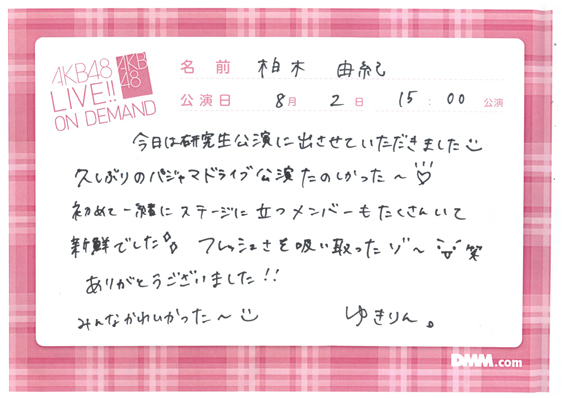 AKB48
LIVE!!
ON DEMAND
AKB
48
名前 柏木 由紀
公演日 8月 2日 15:00 公演
今日は研究生公演に出させていただきました
久しぶりのパジャマドライブ公演たのしかった〜
初めて一緒にステージに立つメンバーもたくさんいて
新鮮でした フレッシュさを吸い取ったゾ〜 笑
ありがとうございました!!
みんなかわいかった〜
ゆきりん。
DMM.com